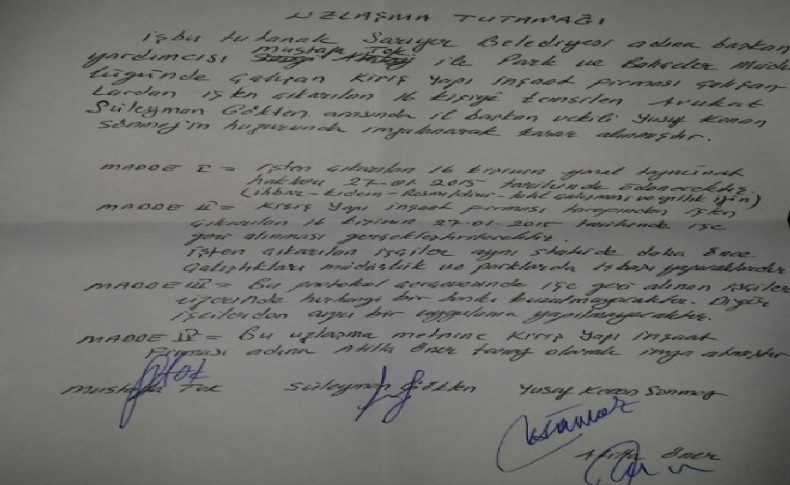 UZLAŞMA TUTANAĞI
işbu tutanak Sarıyer Belediyesi adına başkan
yardımcısı Mustafa Tok ile Park ve Bahçeler Müdür
lüğünde çalışan Kiriş Yapı inşaat firması çalışan
lardan işten çıkarılan 16 kişiyi temsilen Avukat
Süleyman Gökten arasında il başkan vekili Yusuf Kenan
Sönmez'in huzurunda imzalanarak karar alınmıştır.
MADDE I = işten çıkarılan 16 kişinin yasal tazminat
hakkı 27-01 2015 tarihinde ödenecektir.
(ihbar - kıdem - Resmi izin - tatil çalışması ve yıllık için)
MADDE II = Kiriş Yapı inşaat firması tarafından işten
çıkarılan 16 kişinin 27-01-2015 tarihinde işe
geri alınması gerçekleştirilecektir.
işten çıkarılan işçiler aynı daha önce
çalıştıkları müdürlük ve parklarda yapacaklardır
MADDE III = Bu protokol çerçevesinde işe geri alınan işçiler
üzerinde herhangi bir baskı kurulmayacaktır. Diğer
işçilerden ayrı bir uygulama yapılmayacaktır.
MADDE IV = Bu uzlaşma metnine Kiriş Yapı inşaat
Firması adına Atilla Öner taraf olarak imza atmıştır
Mustafa Tok Süleyman Gökten Yusuf Kenan Sönmez
Atilla Öner